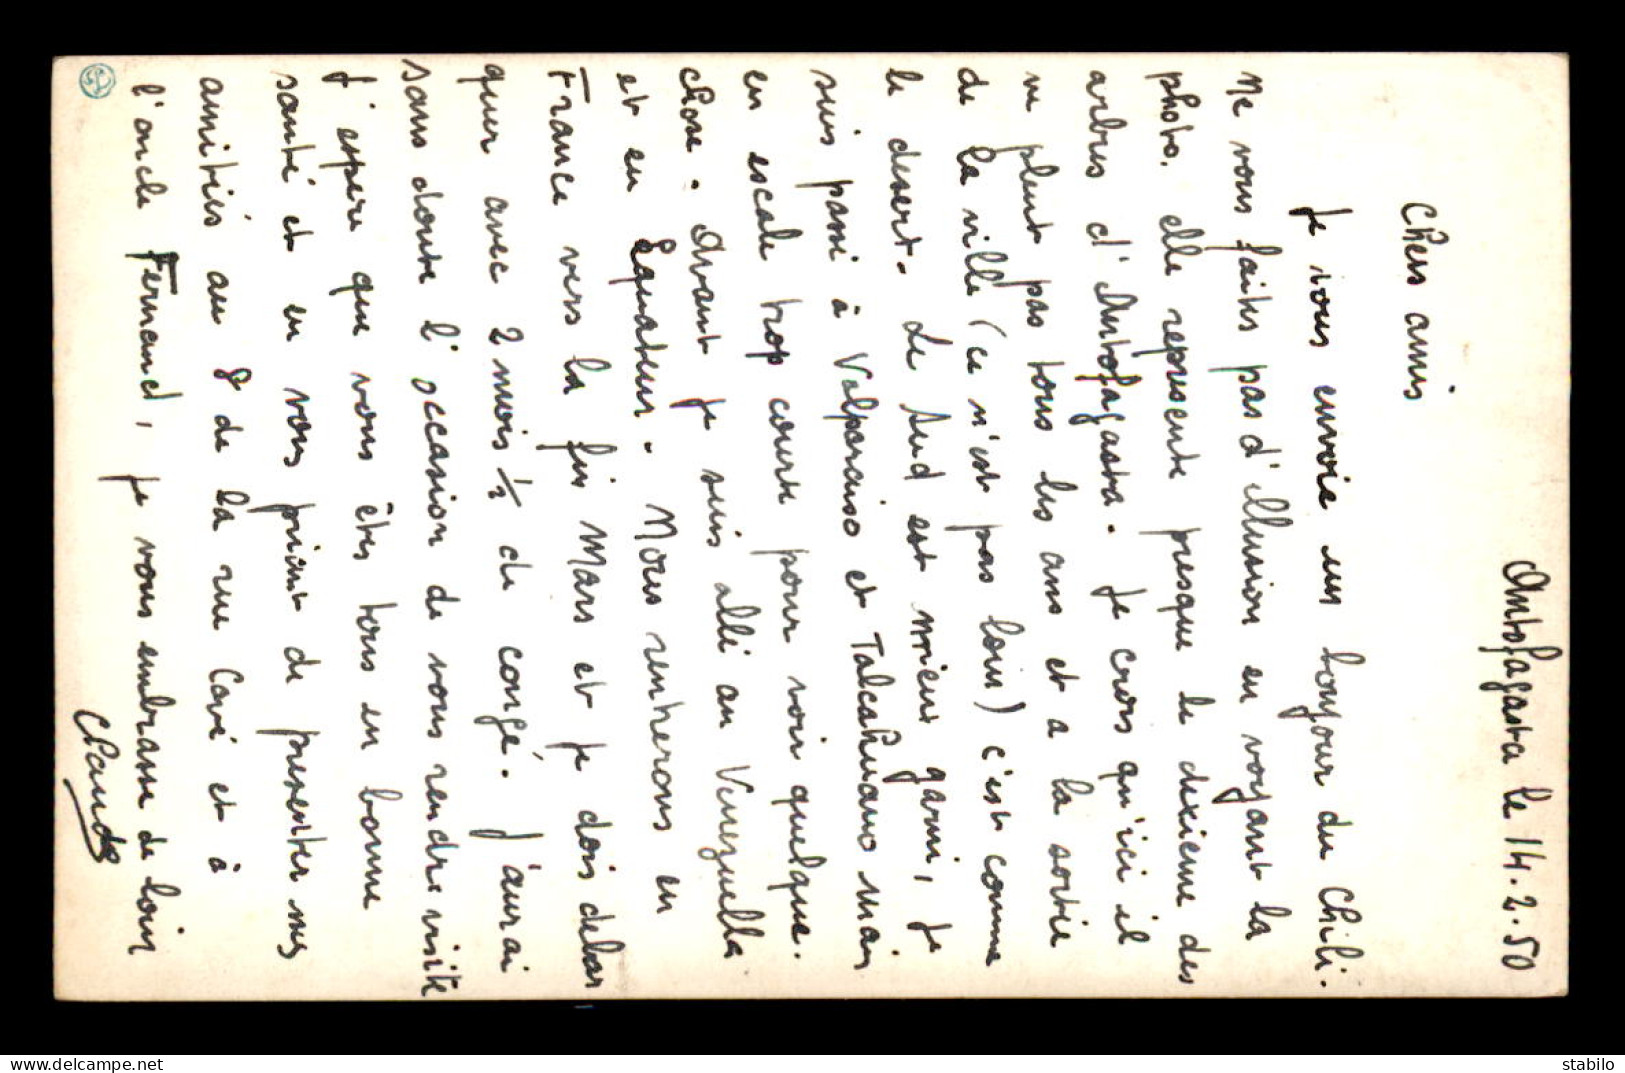 Antofagasta le 14.2.50
Chers amis
Je vous envoie un bonjour du Chili.
Ne vous faites pas d'illusion en voyant la
photo. elle represente presque le dixieme des
arbres d'Antofagasta. Je crois qu'ici il
ne pleut pas tous les ans et a la sortie
de la ville (ce n'est pas loin) c'est comme
le desert. Le Sud est mieux garni, je
suis passé à Valparaiso et Talcahuano mais
en escale trop courte pour voir quelque.
chose. Avant je suis allé au Venezuella
et en Equateur. Nous rentrerons en
France vers la fin Mars et je dois debar
quer avec 2 mois 1/2 de congé. J'aurai
sans doute l'occasion de vous rendre visite
J'espere que vous êtes tous en bonne
santé et en vous priant de presenter mes
amitiés au 8 de la rue Cavé et à
l'oncle Fernand, je vous embrasse de loin
Claude
delcampe.net
stabilo